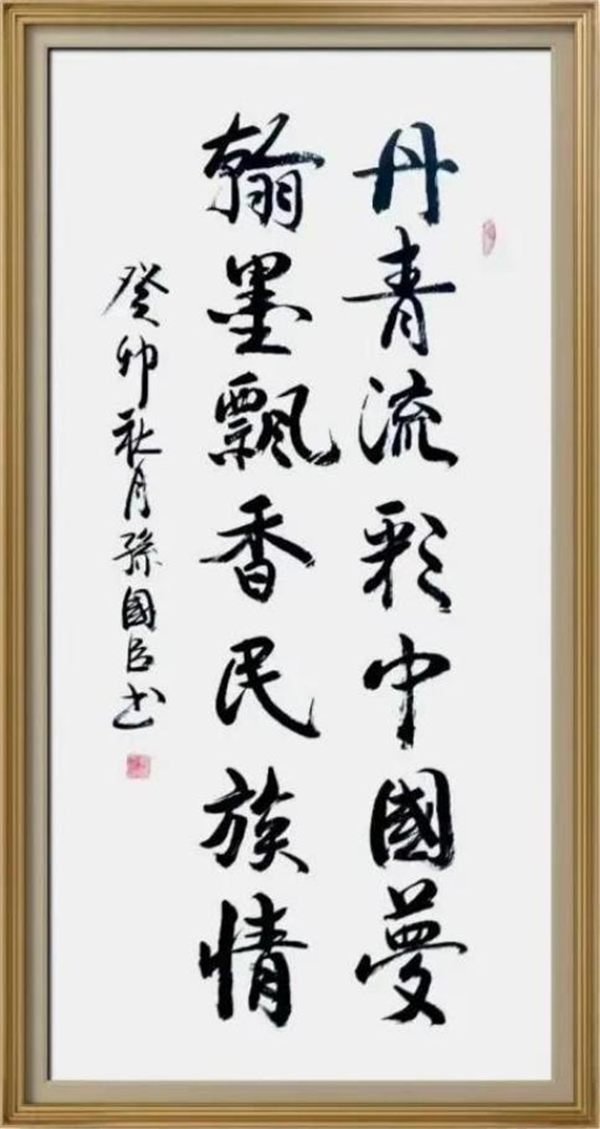 丹青流彩中國夢
翰墨飘香民族情
癸卯秋月孫國臣书